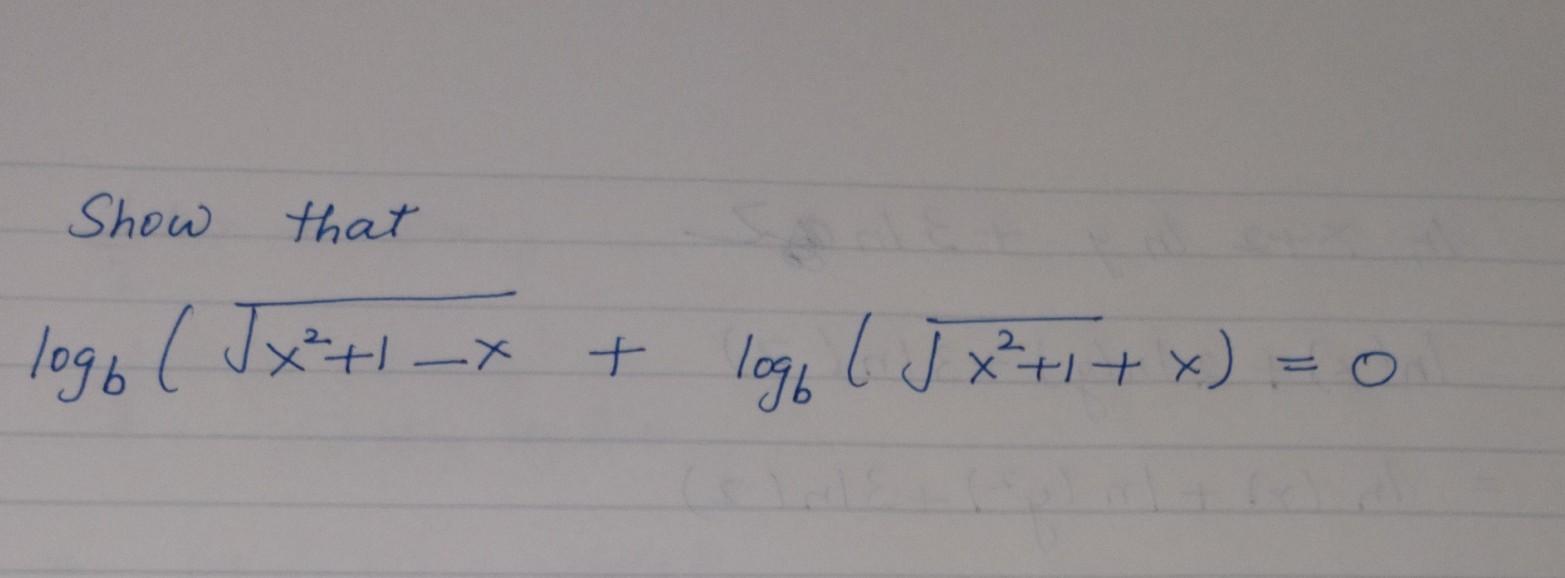 Show that
log_b ( √(x²+1 - x) + log_b ( √(x²+1) + x) = 0